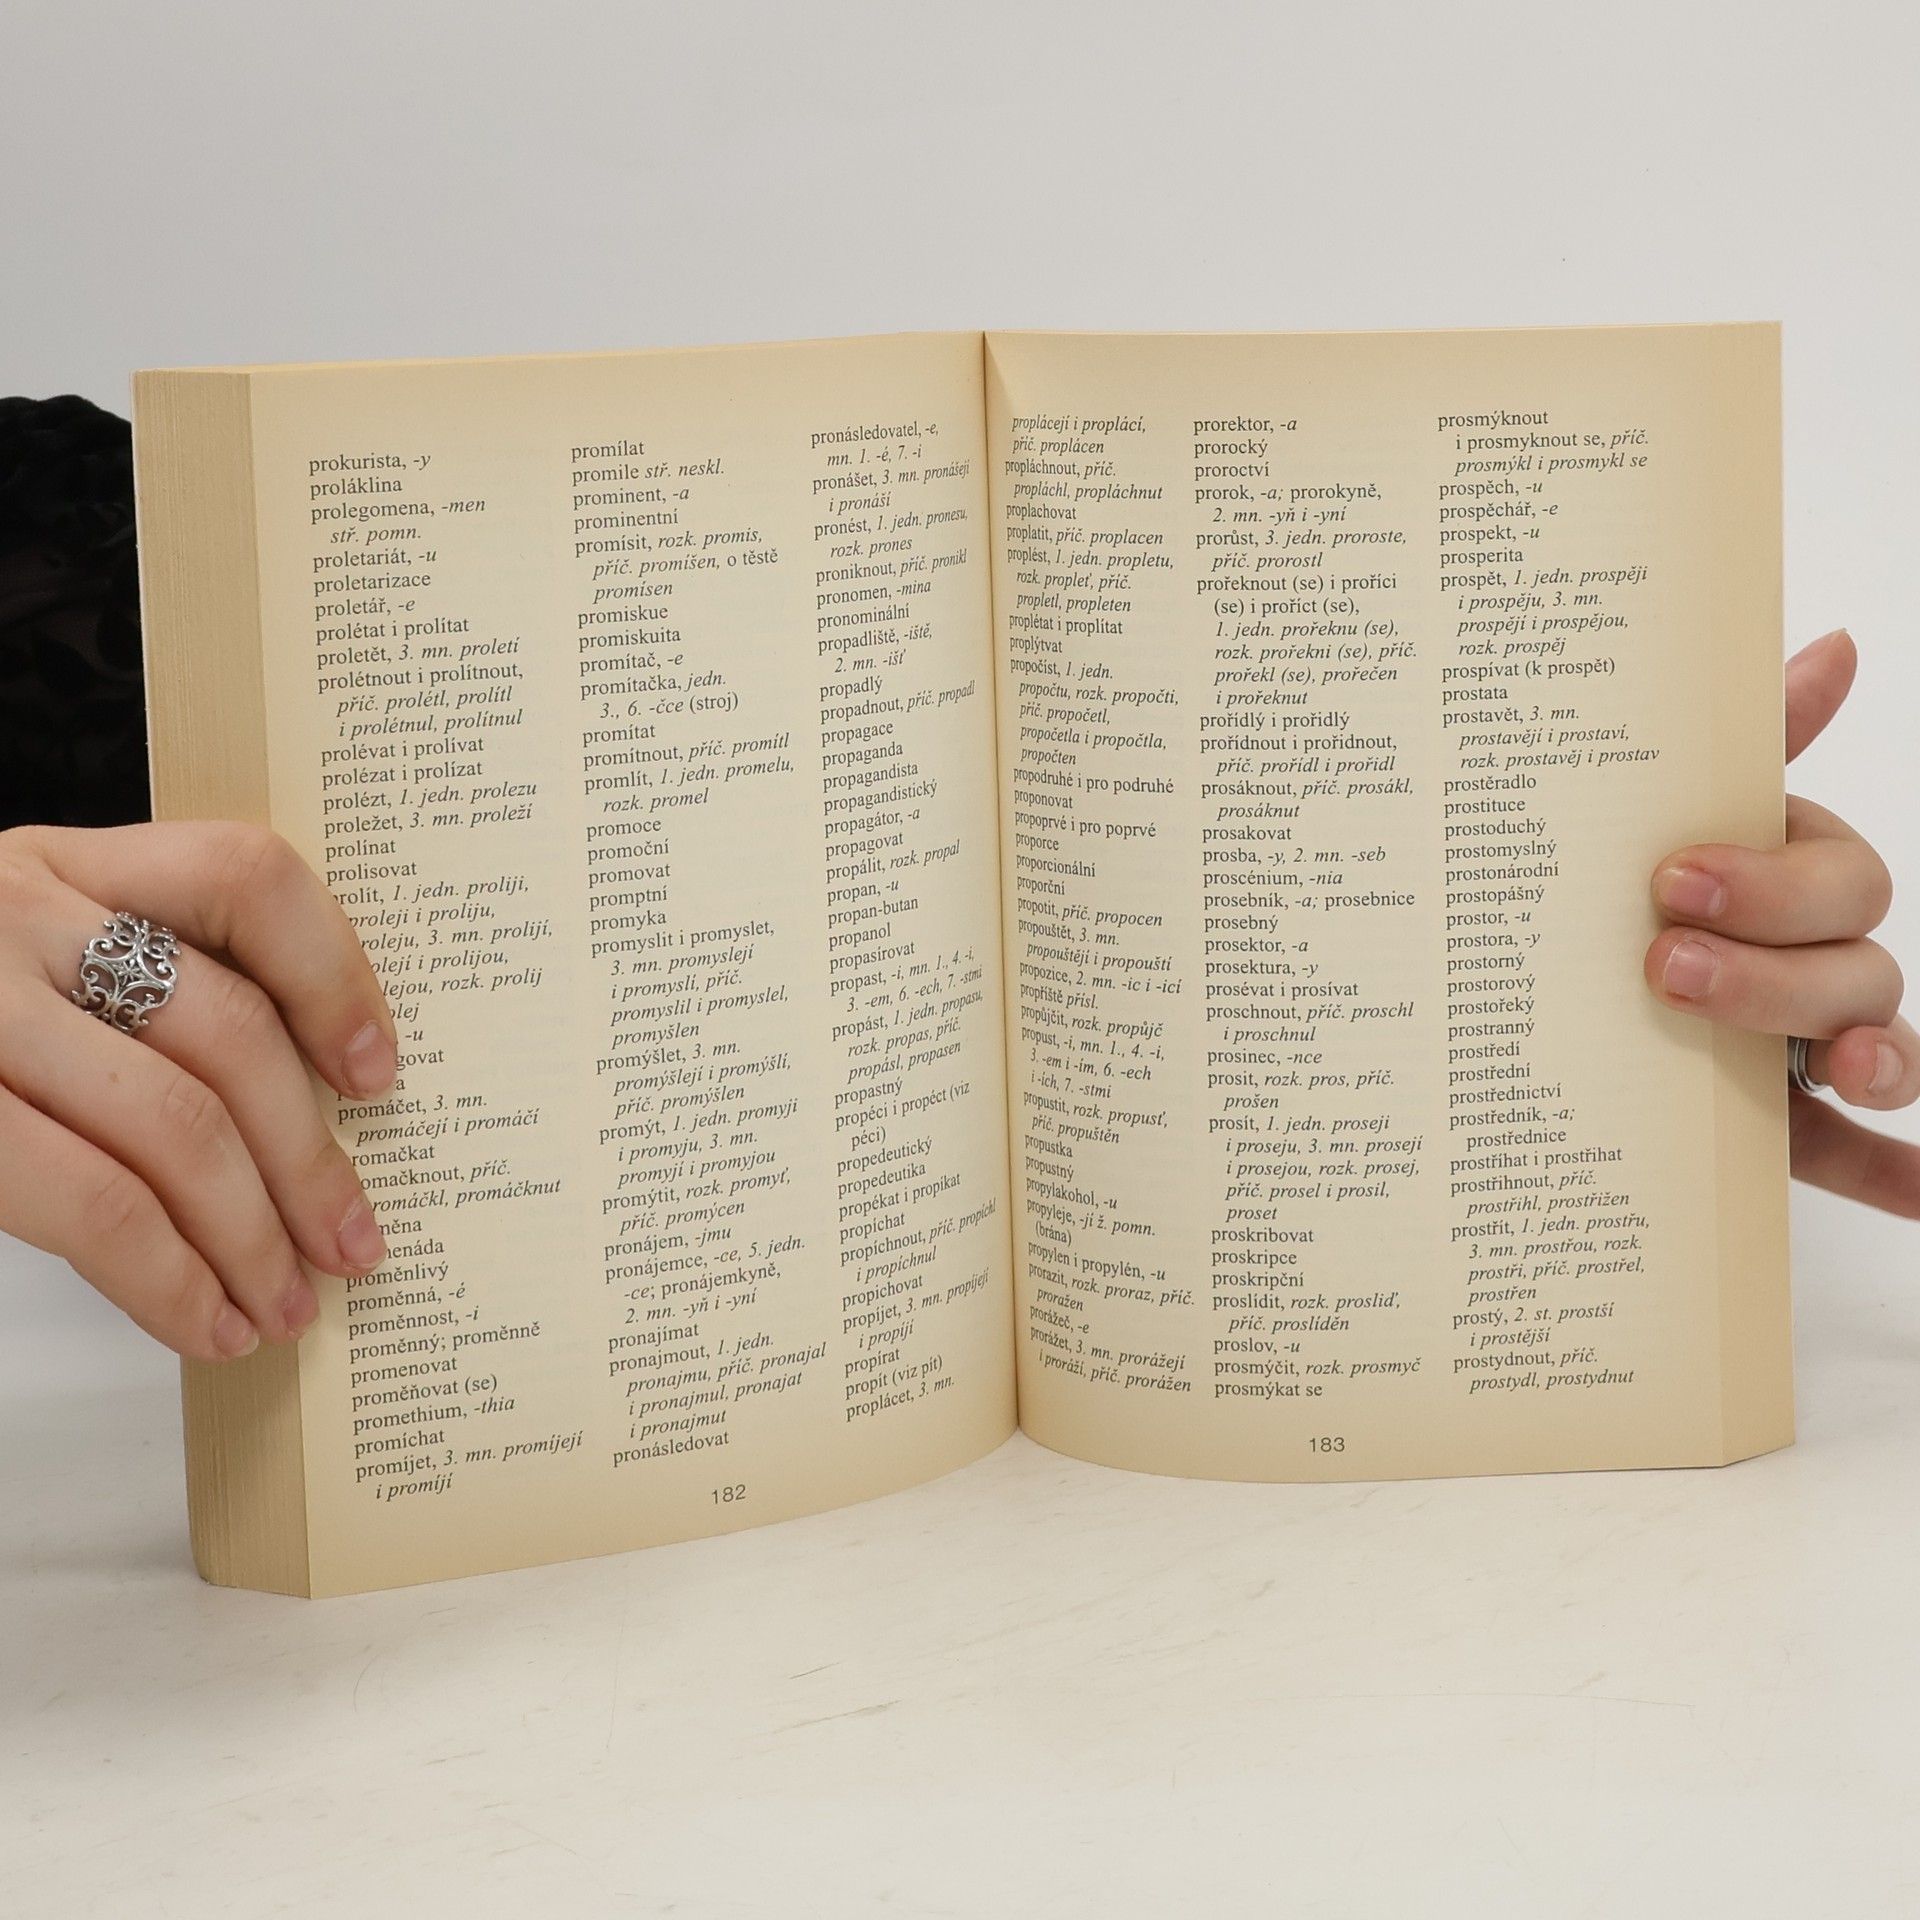 prokurista, -y
proláklina
prolegomena, -men
stř. pomn.
proletariát, -u
proletarizace
proletář, -e
prolétat i prolítat
proletět, 3. mn. proletí
prolétnout i prolítnout,
příč. prolétl, prolítl
i prolétnul, prolítnul
prolévat i prolívat
prolézat i prolízat
prolézt, 1. jedn. prolezu
proležet, 3. mn. proleží
prolínat
prolisovat
prolít, 1. jedn. proliji,
proleji i proliju,
3. mn. prolijí,
i prolijou,
rozk. prolij
-u
promáčet, 3. mn.
promáčejí i promáčí
příč.
promáčknut
proměnlivý
proměnná, -é
proměnnost, -i
proměnný; proměnně
promenovat
proměňovat (se)
promethium, -thia
promíchat
promíjet, 3. mn. promíjejí
i promíjí
promílat
promile stř. neskl.
prominent, -a
prominentní
promísit, rozk. promis,
příč. promíšen, o těstě
promísen
promiskue
promiskuita
promítač, -e
promítačka, jedn.
3., 6. -čce (stroj)
promítat
promítnout, příč. promítl
promlít, 1. jedn. promelu,
rozk. promel
promoce
promoční
promovat
promptní
promyka
promyslit i promyslet,
3. mn. promyslejí
i promyslí, příč.
promyslil i promyslel,
promyšlen
promýšlet, 3. mn.
promýšlejí i promýšlí,
příč. promýšlen
promýt, 1. jedn. promyji
i promyju, 3. mn.
promyjí i promyjou
promýtit, rozk. promyť,
příč. promýcen
pronájem, -jmu
pronájemce, -ce, 5. jedn.
-ce; pronájemkyně,
2. mn. -yň i -yní
pronajímat
pronajmout, 1. jedn.
pronajmu, příč. pronajal
i pronajmul, pronajat
i pronajmut
pronásledovat
pronásledovatel, -e,
mn. 1. -é, 7. -i
pronášet, 3. mn. pronášejí
i pronáší
pronést, 1. jedn. pronesu,
rozk. prones
proniknout, příč. pronikl
pronomen, -mina
pronominální
propadliště, -iště,
2. mn. -išť
propadlý
propadnout, příč. propadl
propagace
propaganda
propagandista
propagandistický
propagátor, -a
propagovat
propálit, rozk. propal
propan, -u
propan-butan
propanol
propasírovat
propast, -i, mn. 1., 4. -i,
3. -em, 6. -ech, 7. -stmi
propást, 1. jedn. propasu,
rozk. propas, příč.
propásl, propasen
propastný
propéci i propéct (viz
péci)
propedeutický
propedeutika
propékat i propíkat
propíchat
propíchnout, příč. propíchl
i propíchnul
propichovat
propíjet, 3. mn. propíjejí
i propíjí
propírat
propít (viz pít)
proplácet, 3. mn.
182
proplácejí i proplácí,
příč. proplácen
propláchnout, příč.
propláchl, propláchnut
proplachovat
proplatit, příč. proplacen
proplést, 1. jedn. propletu,
rozk. propleť, příč.
propletl, propleten
proplétat i proplítat
proplýtvat
propočíst, 1. jedn.
propočtu, rozk. propočti,
příč. propočetl,
propočetla i propočtla,
propočten
propodruhé i pro podruhé
proponovat
propoprvé i pro poprvé
proporce
proporcionální
proporční
propotit, příč. propocen
propouštět, 3. mn.
propouštějí i propouští
propozice, 2. mn. -ic i -icí
propříště přísl.
propůjčit, rozk. propůjč
propust, -i, mn. 1., 4. -i,
3. -em i -ím, 6. -ech
i -ích, 7. -stmi
propustit, rozk. propusť,
příč. propuštěn
propustka
propustný
propylakohol, -u
propyleje, -jí ž. pomn.
(brána)
propylen i propylén, -u
prorazit, rozk. proraz, příč.
proražen
prorážeč, -e
prorážet, 3. mn. prorážejí
i proráží, příč. prorážen
prorektor, -a
prorocký
proroctví
prorok, -a; prorokyně,
2. mn. -yň i -yní
prorůst, 3. jedn. proroste,
příč. prorostl
prořeknout (se) i proříci
(se) i proříct (se),
1. jedn. prořeknu (se),
rozk. prořekni (se), příč.
prořekl (se), prořečen
i prořeknut
prořídlý i prořidlý
prořídnout i prořidnout,
příč. prořídl i prořidl
prosáknout, příč. prosákl,
prosáknut
prosakovat
prosba, -y, 2. mn. -seb
proscénium, -nia
prosebník, -a; prosebnice
prosebný
prosektor, -a
prosektura, -y
prosévat i prosívat
proschnout, příč. proschl
i proschnul
prosinec, -nce
prosit, rozk. pros, příč.
prošen
prosít, 1. jedn. proseji
i proseju, 3. mn. prosejí
i prosejou, rozk. prosej,
příč. prosel i prosil,
proset
proskribovat
proskripce
proskripční
proslídit, rozk. prosliď,
příč. proslíděn
proslov, -u
prosmýčit, rozk. prosmyč
prosmýkat se
prosmýknout
i prosmyknout se, příč.
prosmýkl i prosmykl se
prospěch, -u
prospěchář, -e
prospekt, -u
prosperita
prospět, 1. jedn. prospěji
i prospěju, 3. mn.
prospějí i prospějou,
rozk. prospěj
prospívat (k prospět)
prostata
prostavět, 3. mn.
prostavějí i prostaví,
rozk. prostavěj i prostav
prostěradlo
prostituce
prostoduchý
prostomyslný
prostonárodní
prostopášný
prostor, -u
prostora, -y
prostorný
prostorový
prostořeký
prostranný
prostředí
prostřední
prostřednictví
prostředník, -a;
prostřednice
prostříhat i prostřihat
prostřihnout, příč.
prostřihl, prostřižen
prostřít, 1. jedn. prostřu,
3. mn. prostřou, rozk.
prostři, příč. prostřel,
prostřen
prostý, 2. st. prostší
i prostější
prostydnout, příč.
prostydl, prostydnut
183